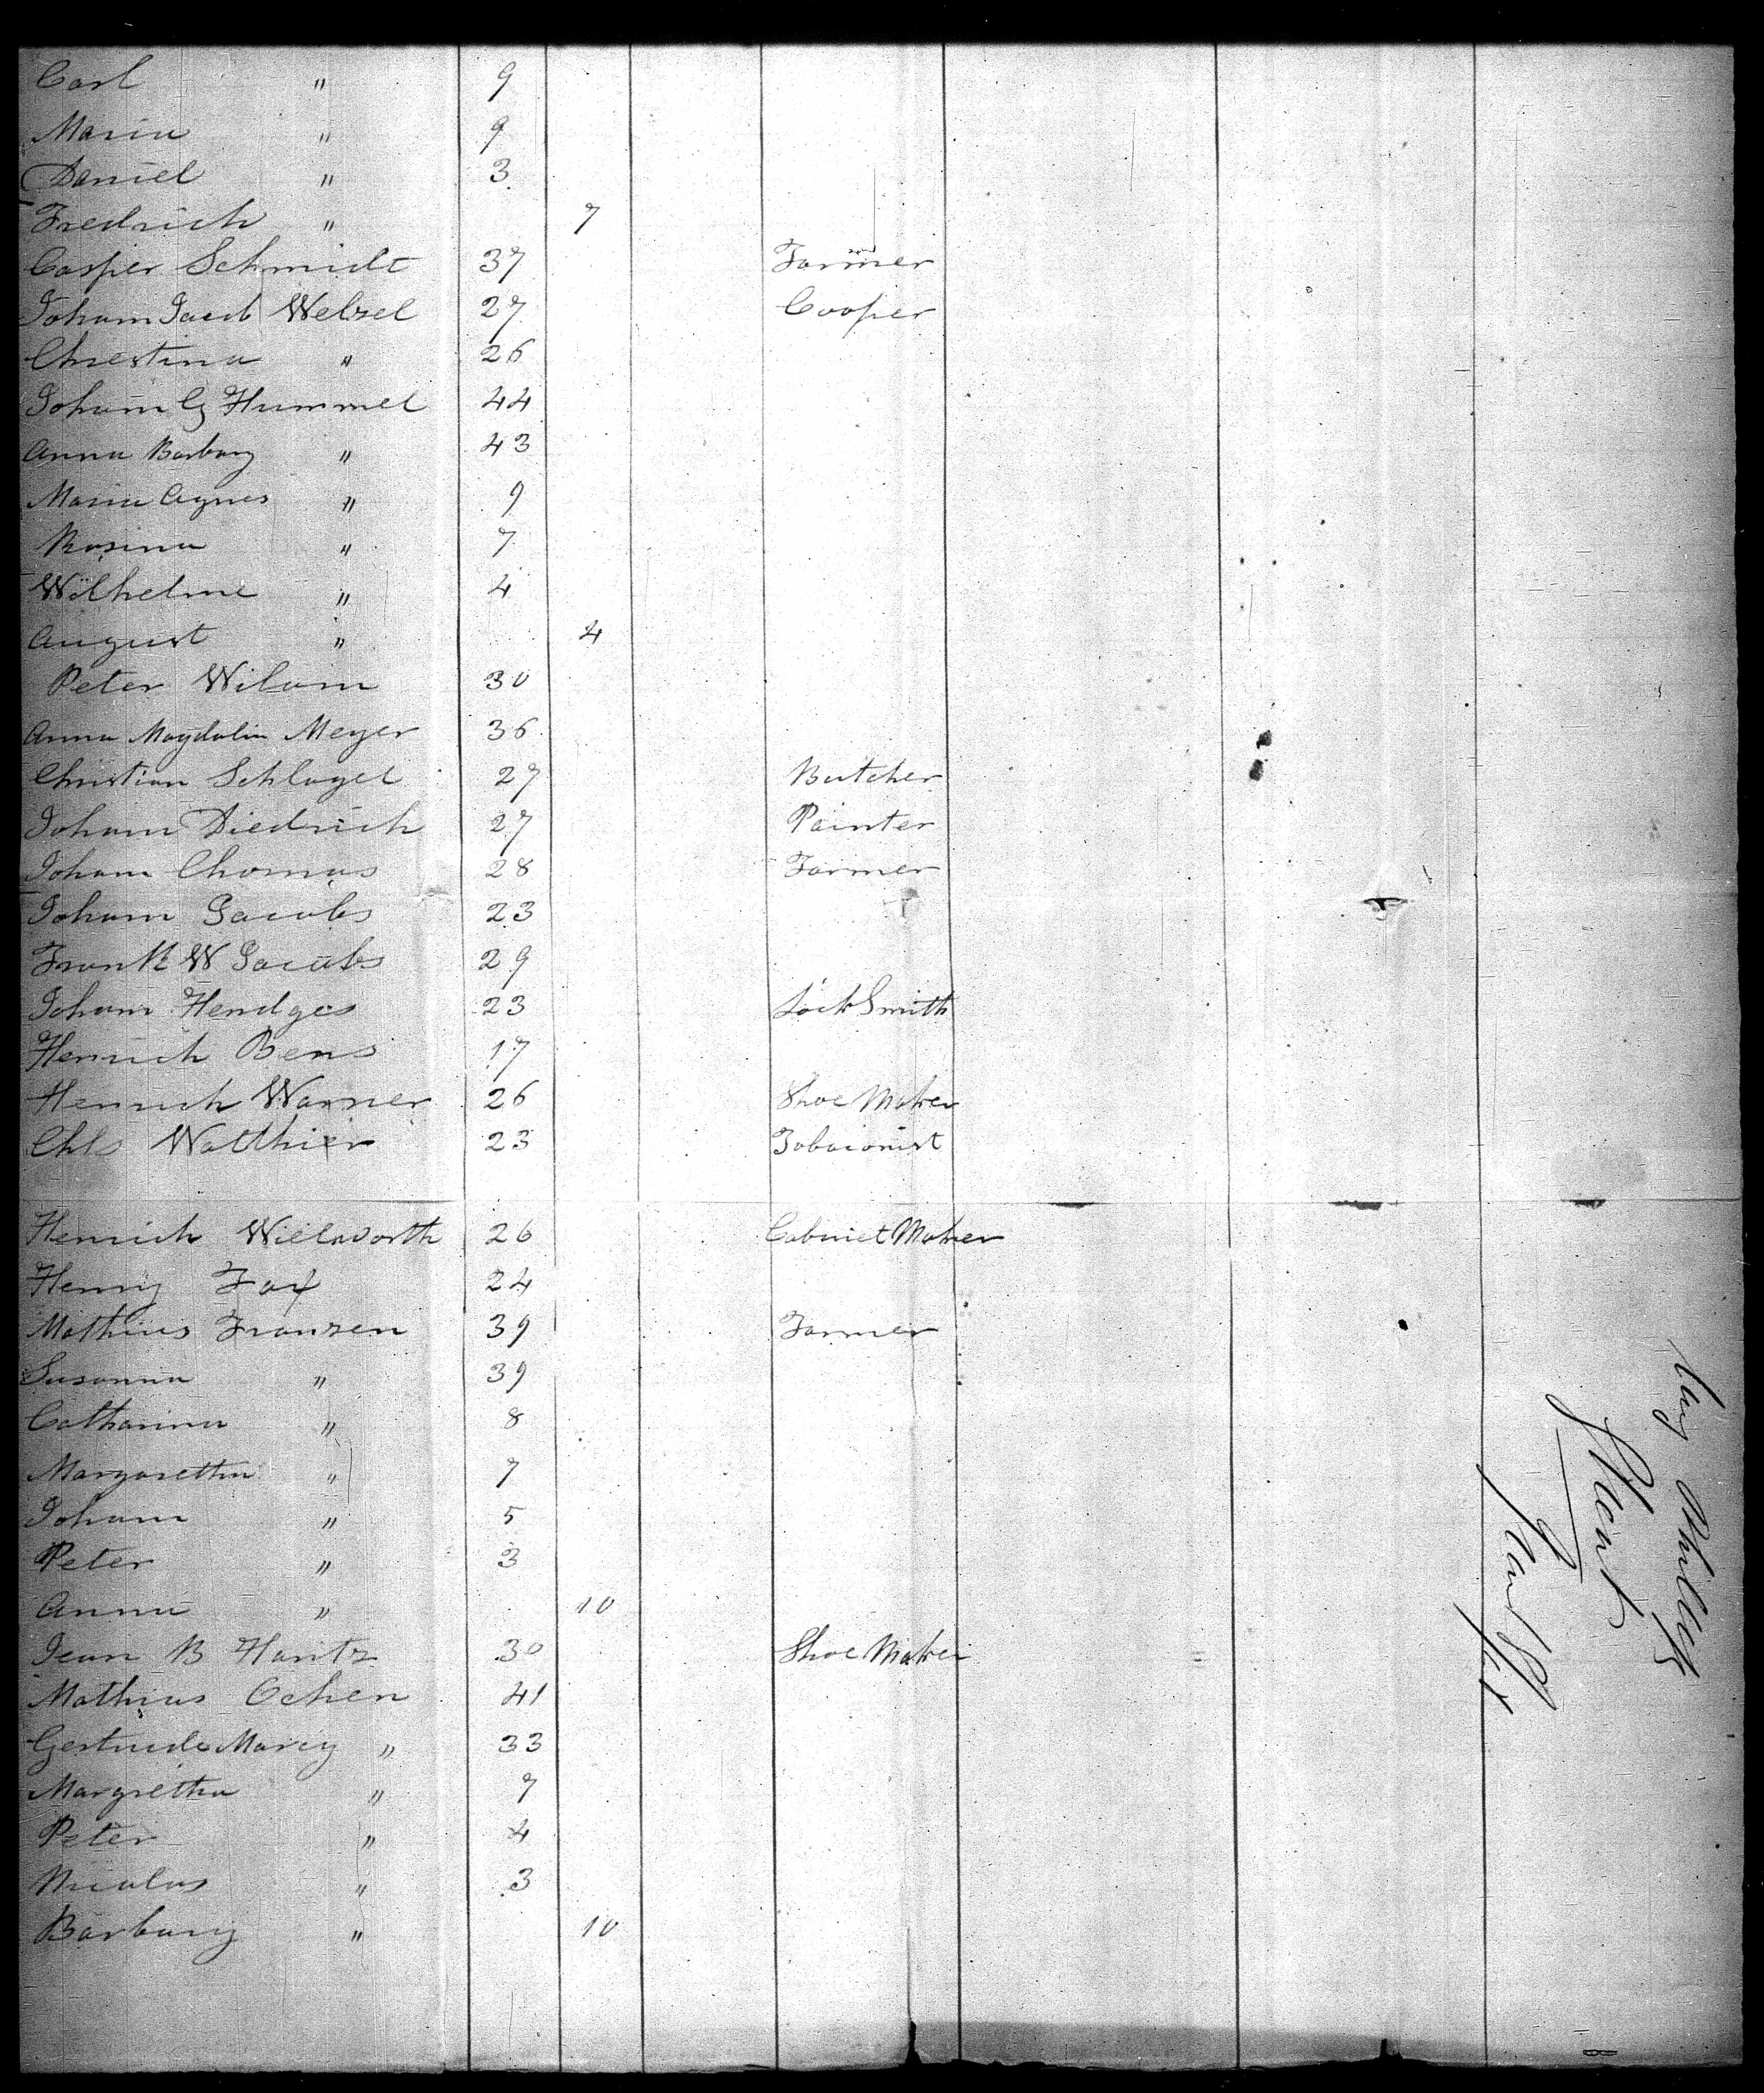 Carl " 9
Maria " 9
Daniel " 3
Fredrich " 7
Casper Schmidt 37 Farmer
Joham Jacob Welzel 27 Cooper
Chrestina " 26
Joham G Hummel 44
Anna Barbary " 43
Maria Agnes " 9
Rosina " 7
Wilhelme " 4
August " 4
Peter Wilam 30
Anna Magdalin Meyer 36
Christian Schlagel 27 Butcher
Joham Diedrich 27 Painter
Joham Thomas 28 Farmer
Joham Jacobs 23
Frank W Jacobs 29
Joham Hendges 23 Lock Smith
Henrich Bens 17
Henrich Warner 26 Shoe Maker
Chls Watthier 23 Tobaconist
Henrich Wiellworth 26 Cabinet Maker
Henry Fox 24
Mathias Franzen 39 Farmer
Susanna " 39
Catharina " 8
Margaretha " 7
Joham " 5
Peter " 3
Anna " 10
Jean B Hantz 30 Shoe Maker
Mathias Ochen 41
Gertrude Marey " 33
Margretha " 7
Peter " 4
Nicolas " 3
Barbary " 10